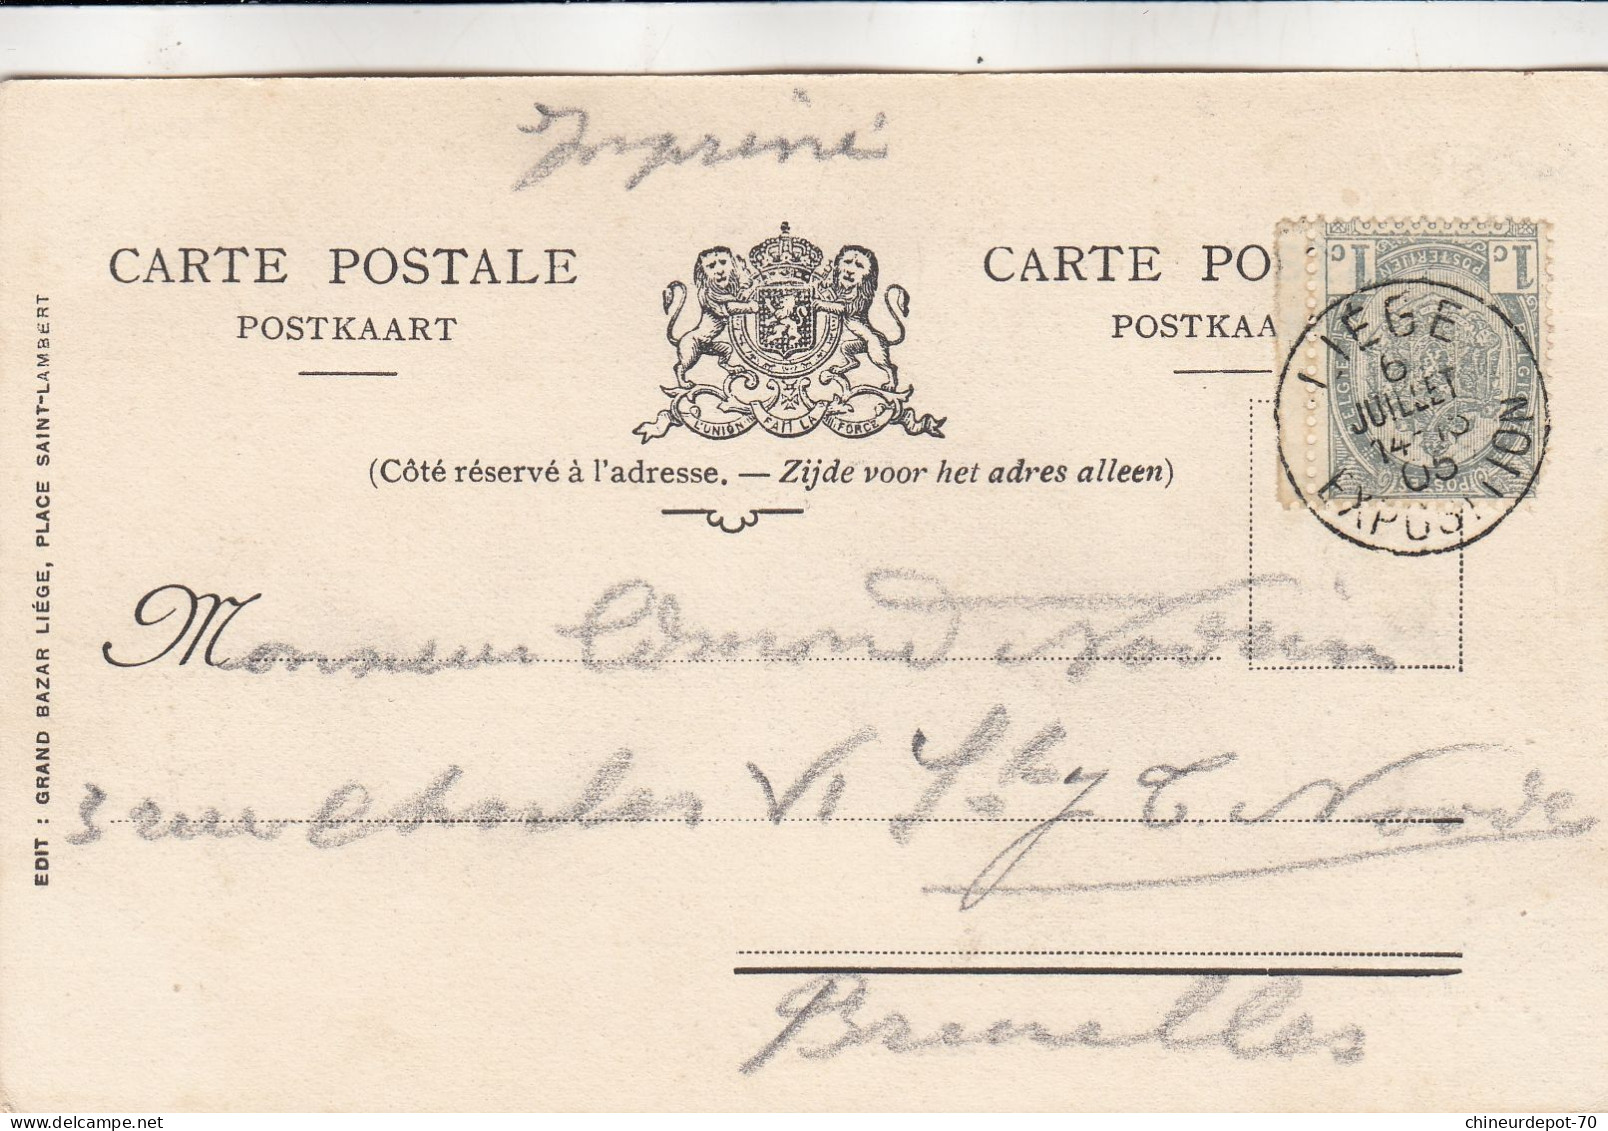 Imprimé
CARTE POSTALE
POSTKAART
L'UNION FAIT LA FORCE
CARTE PO
POSTKAA
1c 1c
POSTERIJEN
LIEGE
6
JUILLET
14-15
05
EXPOSITION
(Côté réservé à l'adresse. — Zijde voor het adres alleen)
EDIT : GRAND BAZAR LIÉGE, PLACE SAINT-LAMBERT
Monsieur Edmond
3 rue Charles VI St T. Noode
Bruxelles
chineurdepot-70